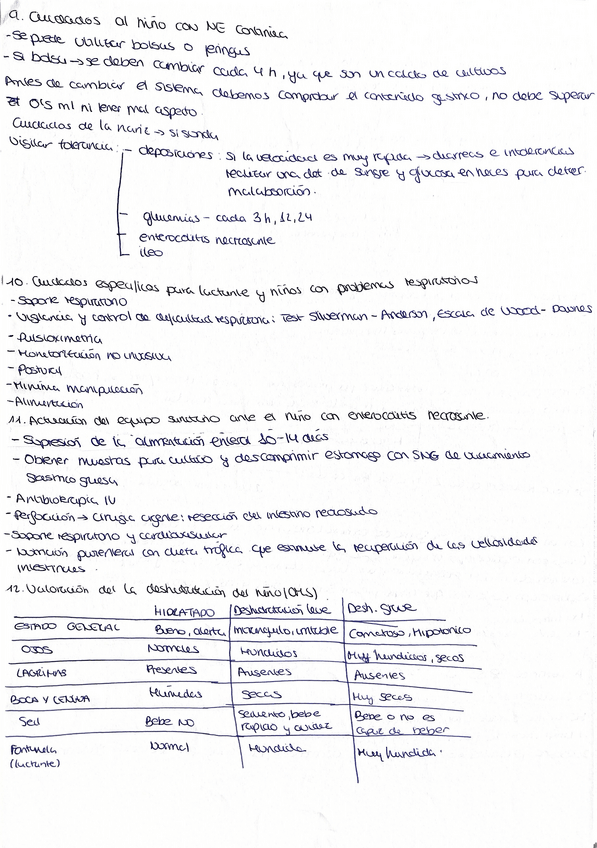 9. Cuidados al niño con NE continua
- Se puede utilizar bolsas o jeringas
- Si bolsa → se deben cambiar cada 4h, ya que son un caldo de cultivos
Antes de cambiar el sistema debemos comprobar el contenido gástrico, no debe superar
0'5 ml ni tener mal aspecto.
Cuidados de la nariz → si sonda
Vigilar tolerancia: - deposiciones: si la velocidad es muy rápida → diarreas e intolerancias
realizar una det. de sangre y glucosa en heces para deter.
malabsorción.
- glucemias - cada 3h, 12, 24
- enterocolitis necrosante
- íleo
10. Cuidados específicos para lactante y niños con problemas respiratorios
- Soporte respiratorio
- Vigilancia y control de dificultad respiratoria: Test Silverman - Anderson, Escala de Wood - Downes
- Pulsioximetria
- Monitorización no invasiva
- Postural
- Mínima manipulación
- Alimentación
11. Actuación del equipo sanitario ante el niño con enterocolitis necrosante.
- Supresión de la alimentación enteral 10-14 días
- Obtener muestras para cultivo y descomprimir estomago con SNG de vaciamiento
gastrico gruesa
- Antibioterapia IV
- Perforación → cirugía urgente: resección del intestino necrosado
- Soporte respiratorio y cardiovascular
- Nutrición parenteral con dieta trófica que estimule la recuperación de las vellosidades
intestinales.
12. Valoración del la deshidratación del niño (OMS)
HIDRATADO Deshidratación leve Desh. grave
ESTADO GENERAL Bueno, alerta intranquilo, irritable Comatoso, Hipotonico
OJOS Normales Hundidos Muy hundidos, secos
LAGRIMAS Presentes Ausentes Ausentes
BOCA Y LENGUA Húmedas Secas Muy secas
Sed Bebe NO Sediento, bebe Bebe o no es
rápido y avidez capaz de beber
Fontanela Normal Hundida Muy hundida.
(lactante)